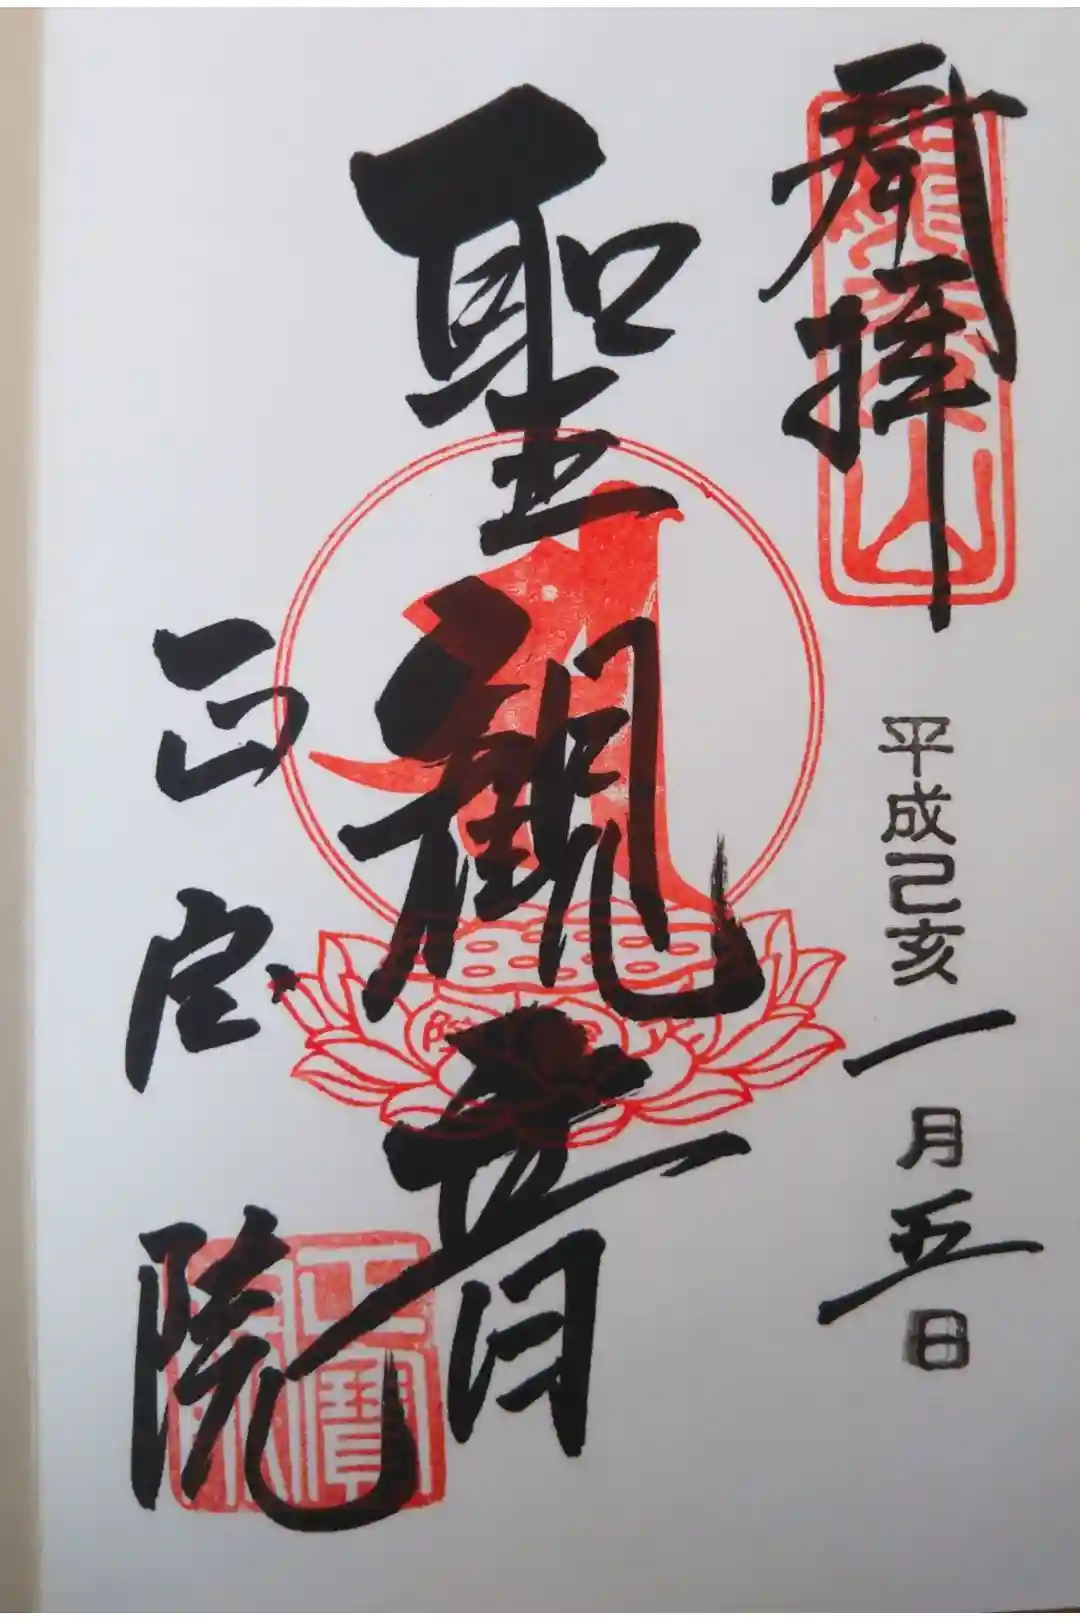 奉拝
龍光山
平成己亥一月五日
聖観音
正宝院
正寶院印